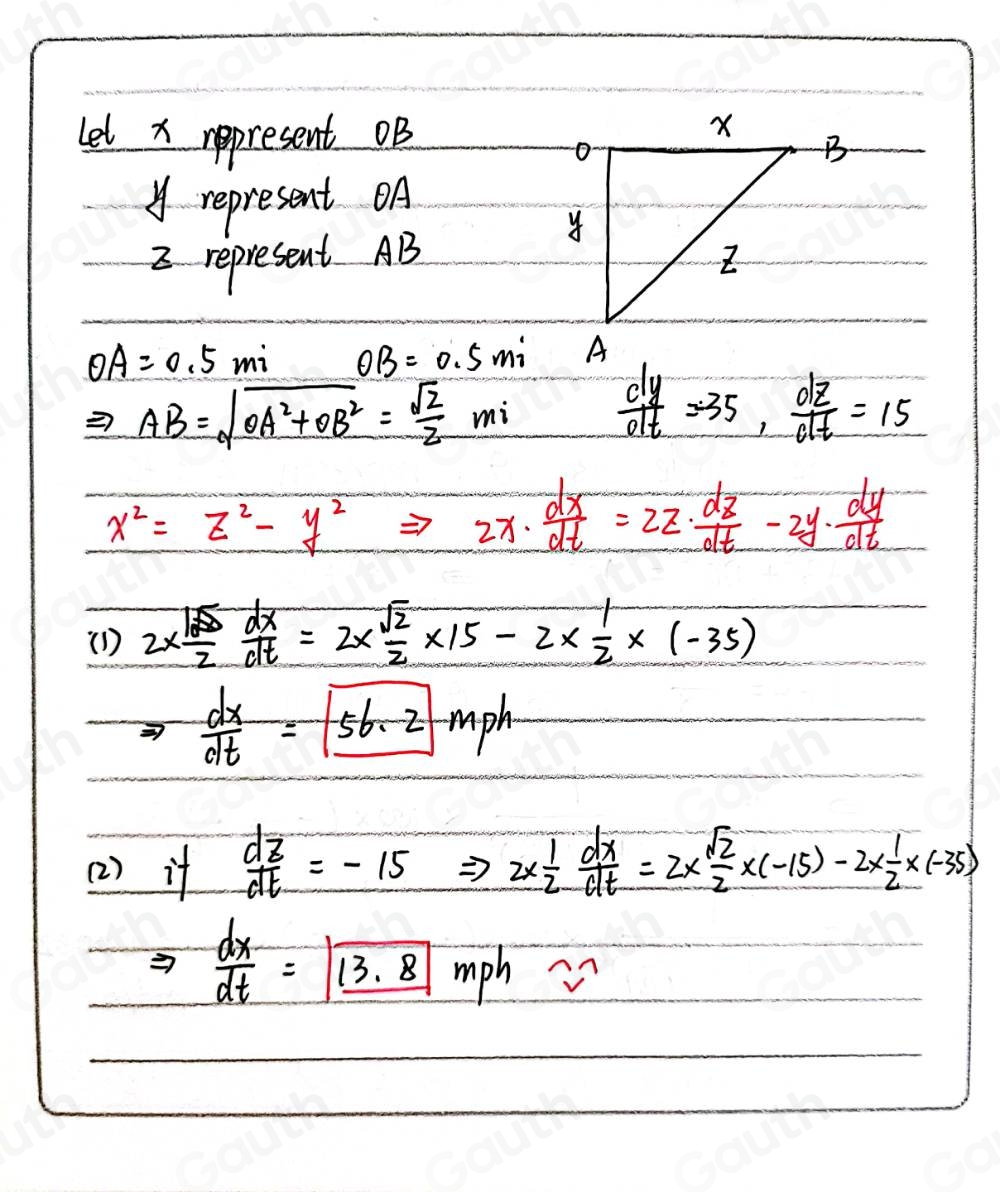 Let x represent OB
y represent OA
z represent AB
O x B
y z
A
OA = 0.5 mi OB = 0.5 mi
⇒ AB = √(OA² + OB²) = √2/2 mi dy/dt = -35, dz/dt = 15
x² = z² - y² ⇒ 2x · dx/dt = 2z · dz/dt - 2y · dy/dt
(1) 2 × 1/2 dx/dt = 2 × √2/2 × 15 - 2 × 1/2 × (-35)
⇒ dx/dt = 56.2 mph
(2) if dz/dt = -15 ⇒ 2 × 1/2 dx/dt = 2 × √2/2 × (-15) - 2 × 1/2 × (-35)
⇒ dx/dt = 13.8 mph
Gauth